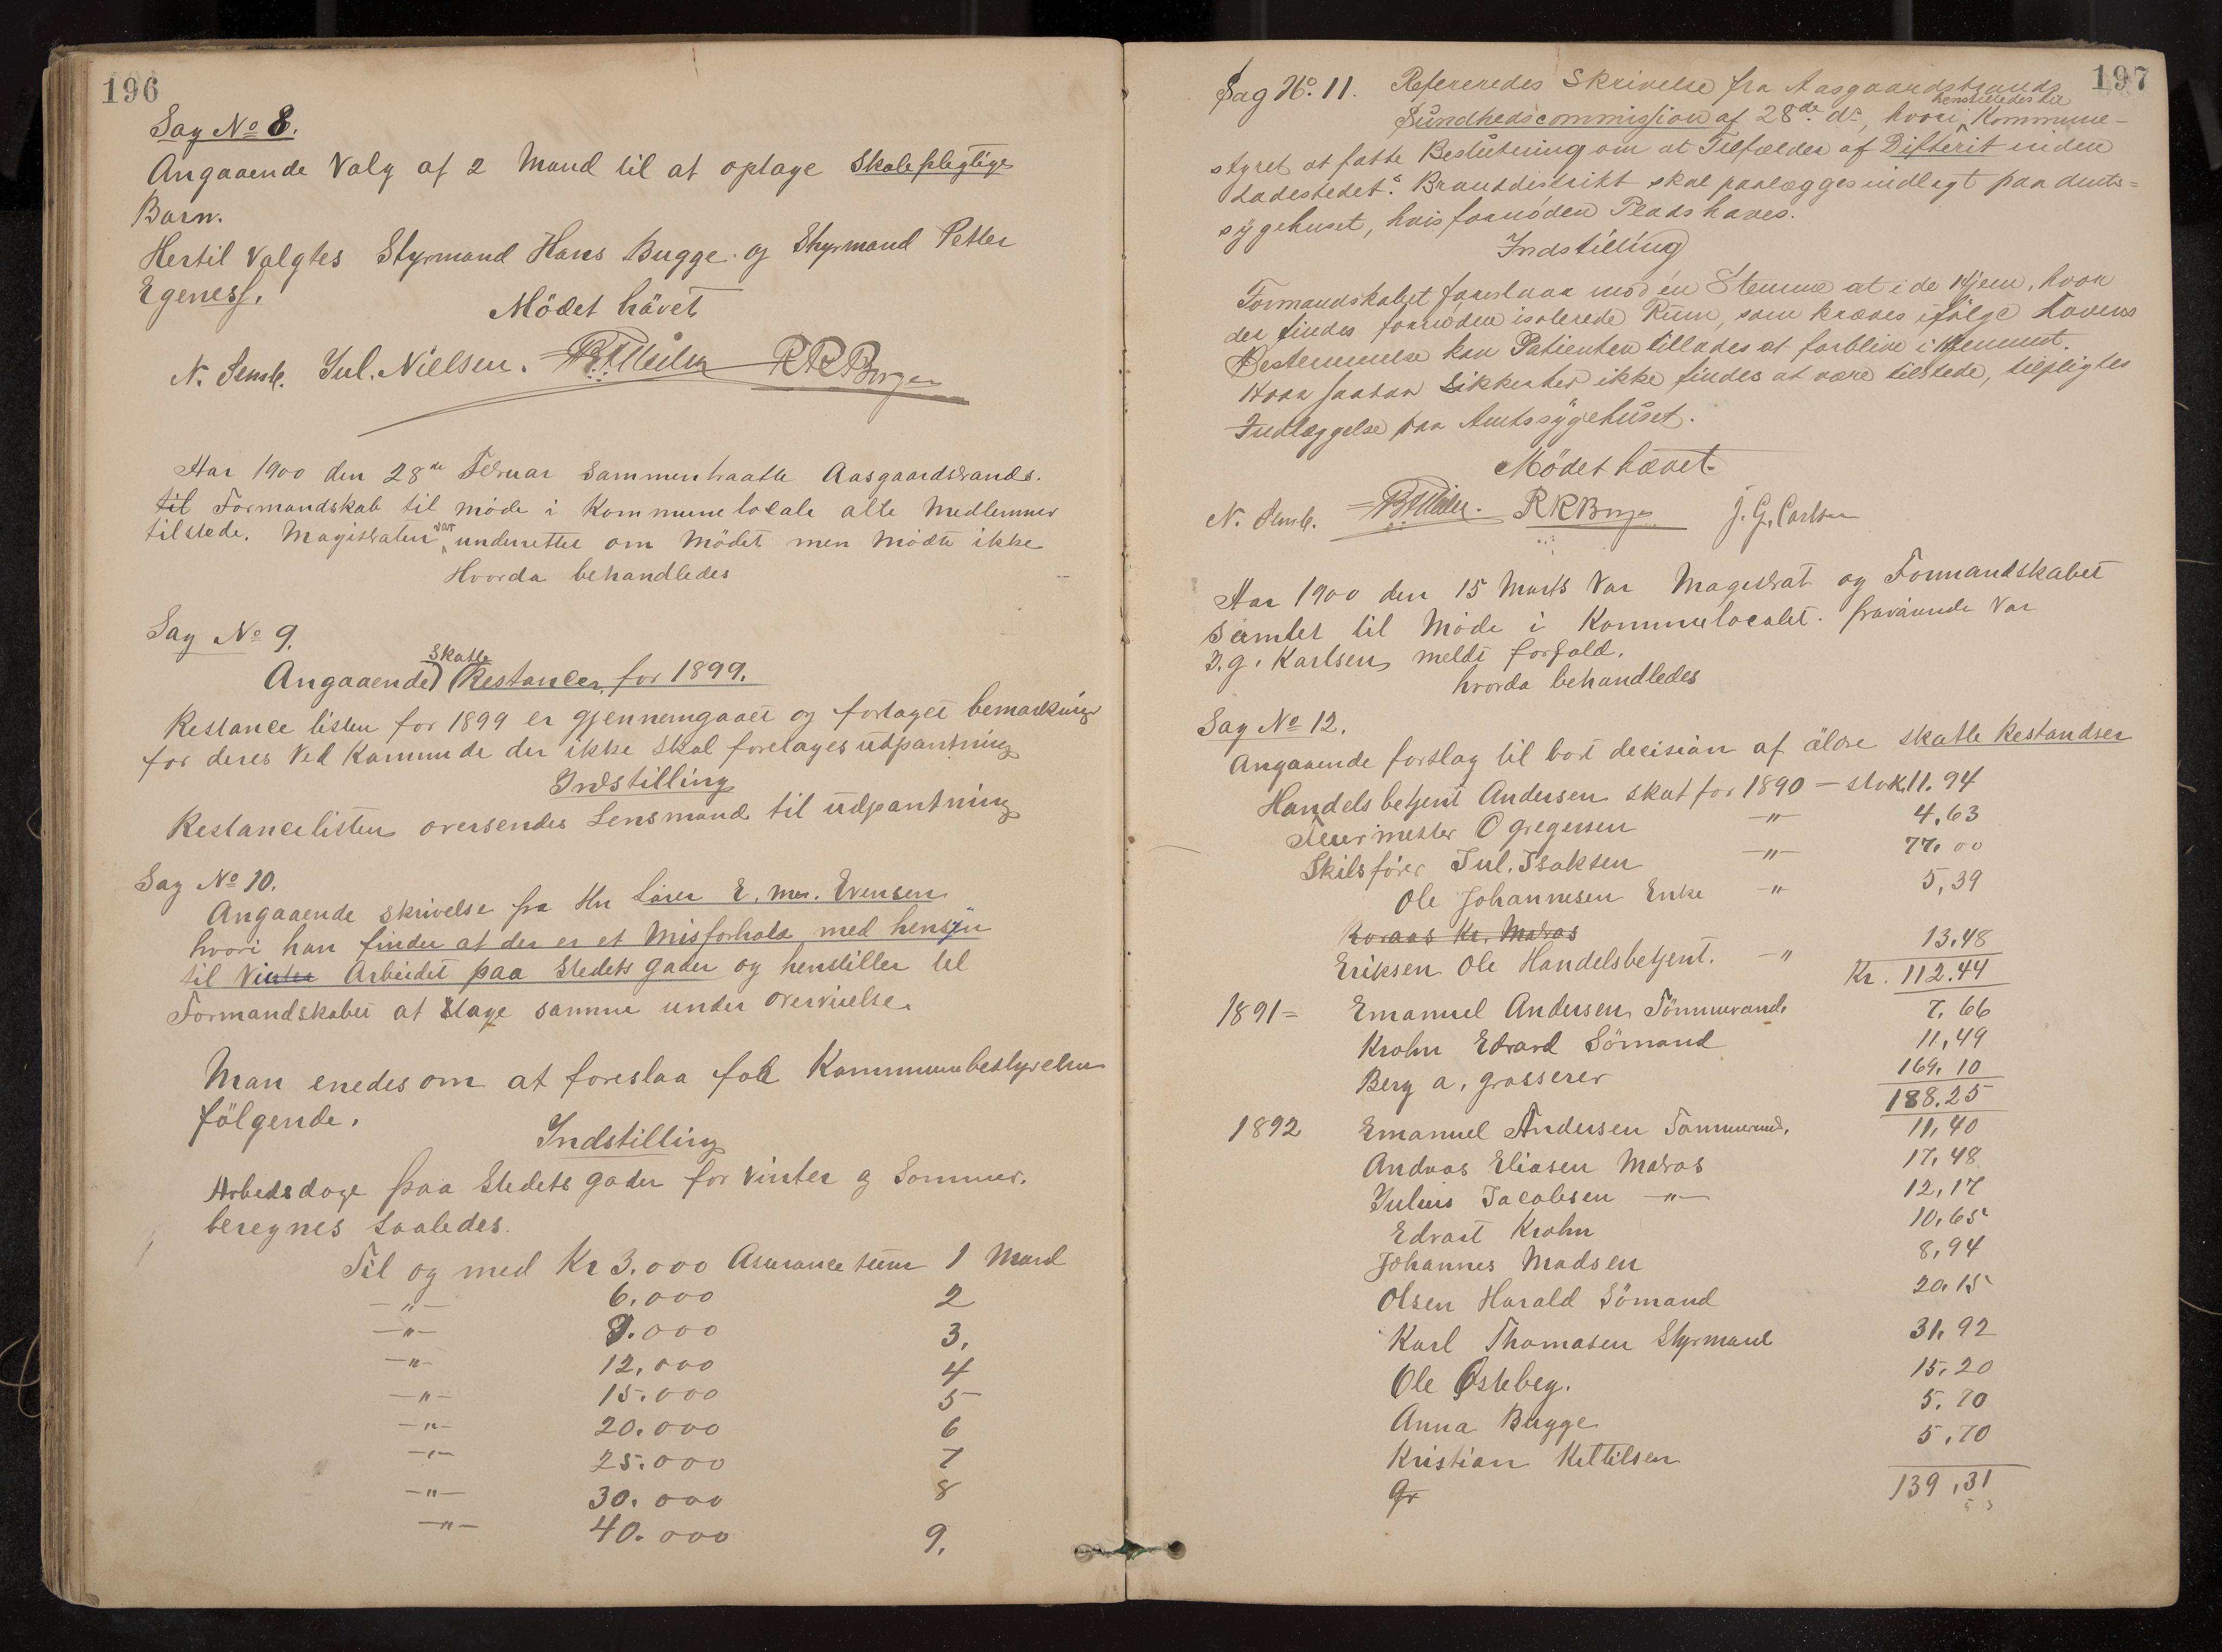 196
Sag No 8.
Angaaende Valg af 2 Mand til at optage Skolepligtige
Barn.
Hertil Valgtes Styrmand Hans Bugge og Styrmand Petter
Egeness.
Mödet hävet
N. Semb. Jul. Nielsen. RRBorge
Aar 1900 den 28de Februar Sammentraatte Aasgaardstrands.
til Formandskab til möde i Kommunelocale alle Medlemmer
tilstede. Magistraten var underrettet om Mödet men mödte ikke
Hvorda behandledes
Sag No 9.
Angaaende Skatte Restancer for 1899.
Restance listen for 1899 er gjennemgaaet og fortaget bemærkning
for deres Ved Kommende der ikke skal foretages udpantning
Indstilling
Restancelisten oversendes Lensmand til udpantning
Sag No 10.
Angaaende skrivelse fra Hr Lärer E. Mar. Evensen
hvori han finder at der er et Misforhold med hensyn
til Vinter Arbeidet paa Stedets gader og henstiller til
Formandskabet at tage samme under overveielse.
Man enedes om at foreslaa for Kommunebestyrelsen
fölgende.
Indstilling
Arbeidsdage paa Stedets gader for Vinter og Sommer.
beregnes saaledes.
Til og med Kr 3.000 Asuranse sum 1 Mand
—"— 6.000 2
—"— 9.000 3.
—"— 12.000 4
—"— 15.000 5
—"— 20.000 6
—"— 25.000 7
—"— 30.000 8
—"— 40.000 9.
197
Sag No. 11. Refereredes Skrivelse fra Aasgaardstrands
Sundhedscommission af 28de ds, hvori henstilledes til Kommune-
styret at fatte Beslutning om at Tilfælder af Difterit inden
Ladestedets Branddistrikt skal paalægges indlagt paa Amts-
sygehuset, hvis fornöden Plads haves.
Indstilling
Formandskabet foreslaar mod én Stemme at i de Hjem, hvor
der findes fornödne isolerede Rum, som kræves ifölge Lovens
Bestemmelse kan Patienten tillades at forblive i Hjemmet.
Hvor saadan Sikkerhed ikke findes at være tilstede, tilpligtes
Indlæggelse paa Amtssygehuset.
Mödet hævet.
N. Semb. RRBorge J. G. Carlsen
Aar 1900 den 15 Marts Var Magistrat og Formandskabet
Samlet til Möde i Kommunelocalet. fraværende Var
J. G. Karlsen meldt forfald.
hvorda behandledes
Sag No 12.
Angaaende forslag til bort decision af äldre skatte Restandser
Handelsbetjent Andersen skat for 1890 – stor K. 11.94
Murmester O Gregersen —"— 4,63
Skibsförer Jul. Isaksen —"— 77.00
Ole Johannesen Enke —"— 5,39
Kr. Madras
Eriksen Ole Handelsbetjent. —" 13,48
Kr. 112.44
1891 = Emanuel Andersen Tömmermand. 7.66
Krohn Edvard Sömand 11,49
Berg A. grosserer 169.10
188.25
1892 Emanuel Andersen Tömmermand. 11,40
Andreas Eliasen Madros 17,48
Julius Jacobsen —"— 12,17
Edvart Krohn 10,65
Johannes Madsen 8,94
Olsen Harald Sömand 20.15
Karl Thomasen Styrmand 31,92
Ole Østeby. 15.20
Anna Bugge 5.70
Kristian Kettilsen 5,70
Gr
139,31